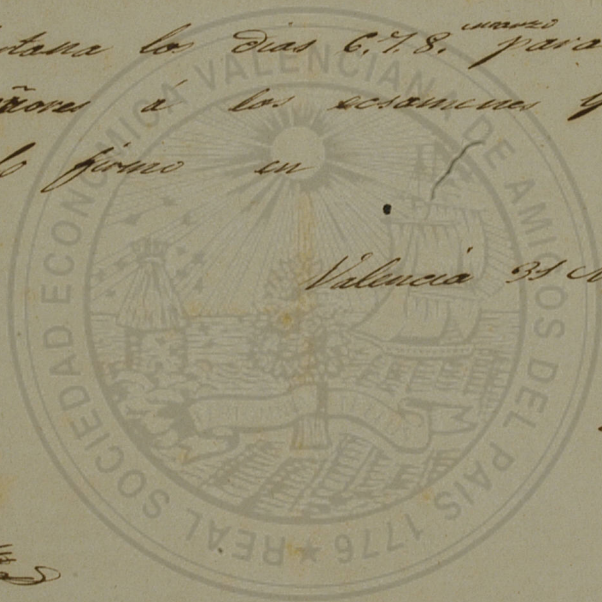 los dias 6. 7. 8. para
á los ecsamenes
lo firmo en
Valencia 31
REAL SOCIEDAD ECONÓMICA VALENCIANA DE AMIGOS DEL PAIS 1776